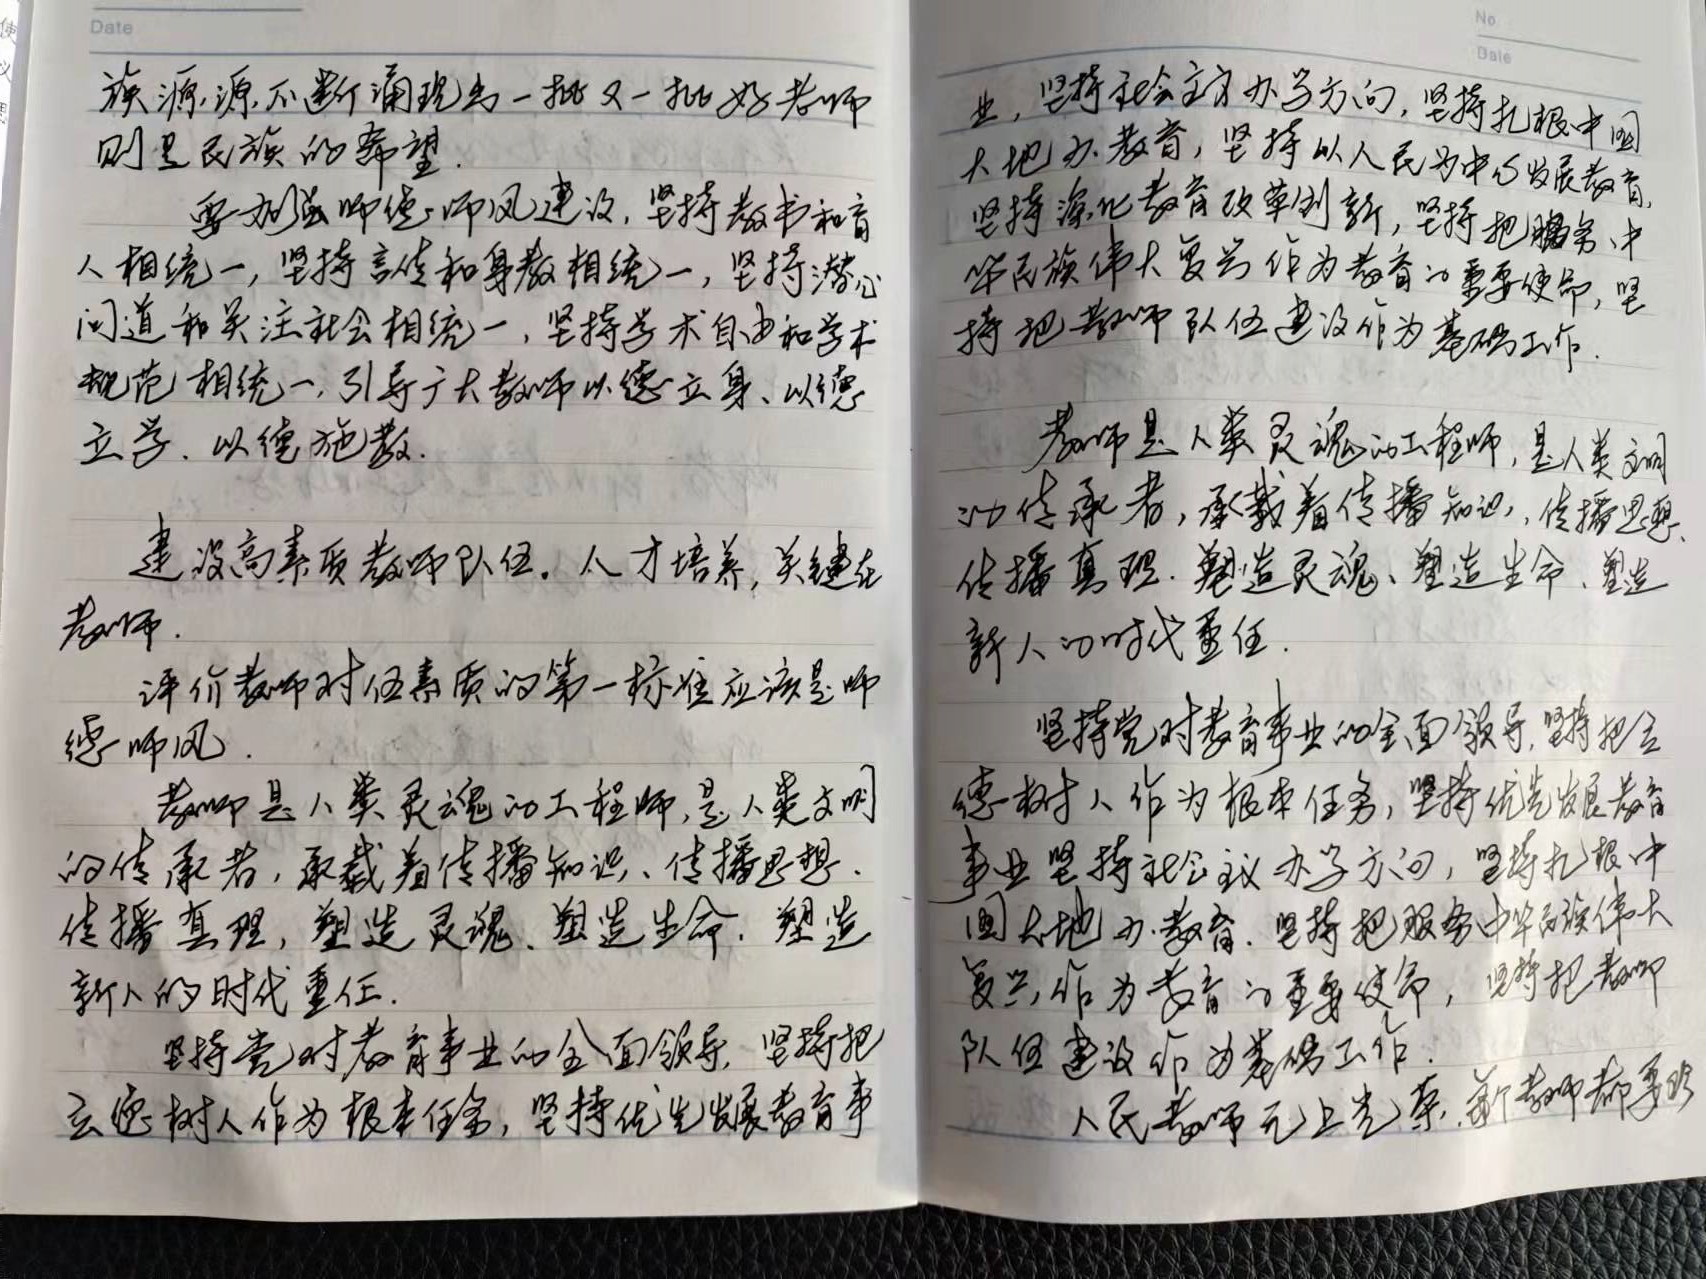 Date
族源源不断涌现出一批又一批好老师
则是民族的希望.
要加强师德师风建设,坚持教书和育
人相统一,坚持言传和身教相统一,坚持潜心
问道和关注社会相统一,坚持学术自由和学术
规范相统一,引导广大教师以德立身、以德
立学、以德施教.
建设高素质教师队伍。人才培养,关键在
教师.
评价教师对伍素质的第一标准应该是师
德师风.
教师是人类灵魂的工程师,是人类文明
的传承者,承载着传播知识、传播思想、
传播真理,塑造灵魂、塑造生命、塑造
新人的时代重任.
坚持党对教育事业的全面领导,坚持把
立德树人作为根本任务,坚持优先发展教育事
No
Date
业,坚持社会主义办学方向,坚持扎根中国
大地办教育,坚持以人民为中心发展教育,
坚持深化教育改革创新,坚持把服务中
华民族伟大复兴作为教育的重要使命,坚
持把教师队伍建设作为基础工作.
教师是人类灵魂的工程师,是人类文明
的传承者,承载着传播知识,传播思想、
传播真理.塑造灵魂、塑造生命、塑造
新人的时代重任.
坚持党对教育事业的全面领导,坚持把立
德树人作为根本任务,坚持优先发展教育
事业坚持社会主议办学方向,坚持扎根中
国大地办教育.坚持把服务中华民族伟大
复兴作为教育的重要使命,坚持把教师
队伍建设作为基础工作.
人民教师无上光荣,每个教师都要珍